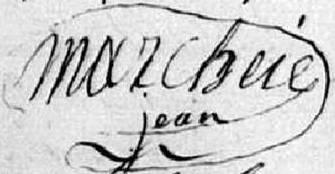 marcheie
jean